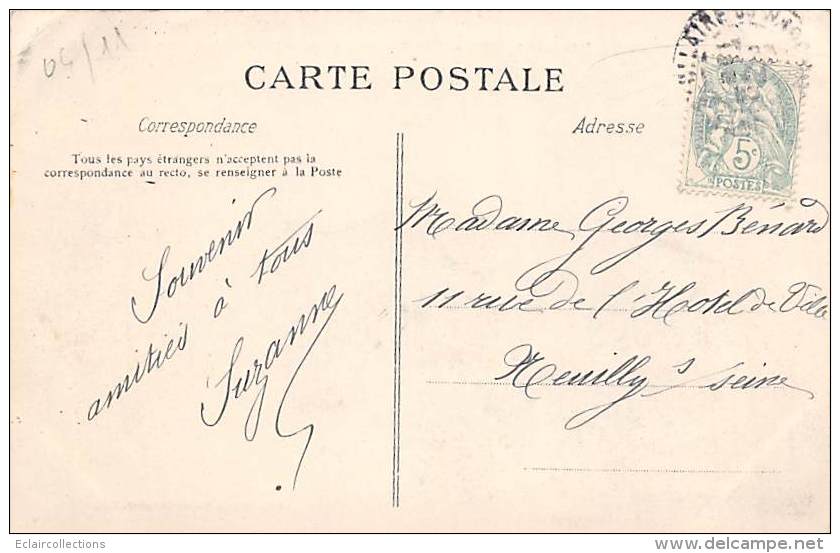 05/11
CARTE POSTALE
Correspondance
Adresse
Tous les pays étrangers n'acceptent pas la
correspondance au recto, se renseigner à la Poste
5c
POSTES
Souvenir
amitiés à tous
Suzanne
Madame Georges Bénard
11 rue de l'Hotel de Ville
Neuilly s/ seine
Eclaircollections
www.delcampe.net